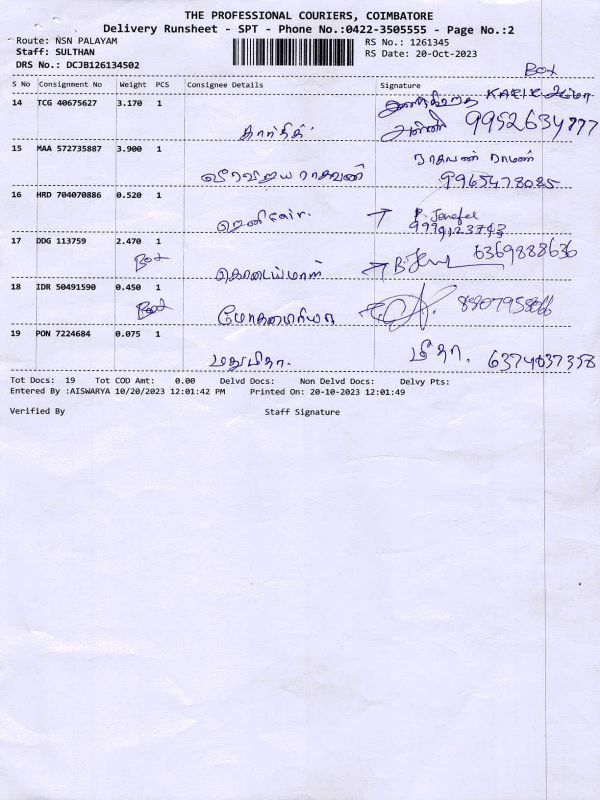 THE PROFESSIONAL COURIERS, COIMBATORE
Delivery Runsheet - SPT - Phone No.:0422-3505555 - Page No.:2
Route: NSN PALAYAM RS No.: 1261345
Staff: SULTHAN RS Date: 20-Oct-2023
DRS No.: DCJB126134502
Box
S No Consignment No Weight PCS Consignee Details Signature
14 TCG 40675627 3.170 1
கார்த்திக் 9952634777
15 MAA 572735887 3.900 1 ராகவன்
வீரவிஜய ராகவனி 9965478085
16 HRD 704070886 0.520 1
17 DDG 113759 2.470 1 6369888636
Box
18 IDR 50491590 0.450 1
19 PON 7224684 0.075 1
மதுமிதா. 6374037358
Tot Docs: 19 Tot COD Amt: 0.00 Delvd Docs: Non Delvd Docs: Delvy Pts:
Entered By :AISWARYA 10/20/2023 12:01:42 PM Printed On: 20-10-2023 12:01:49
Verified By Staff Signature